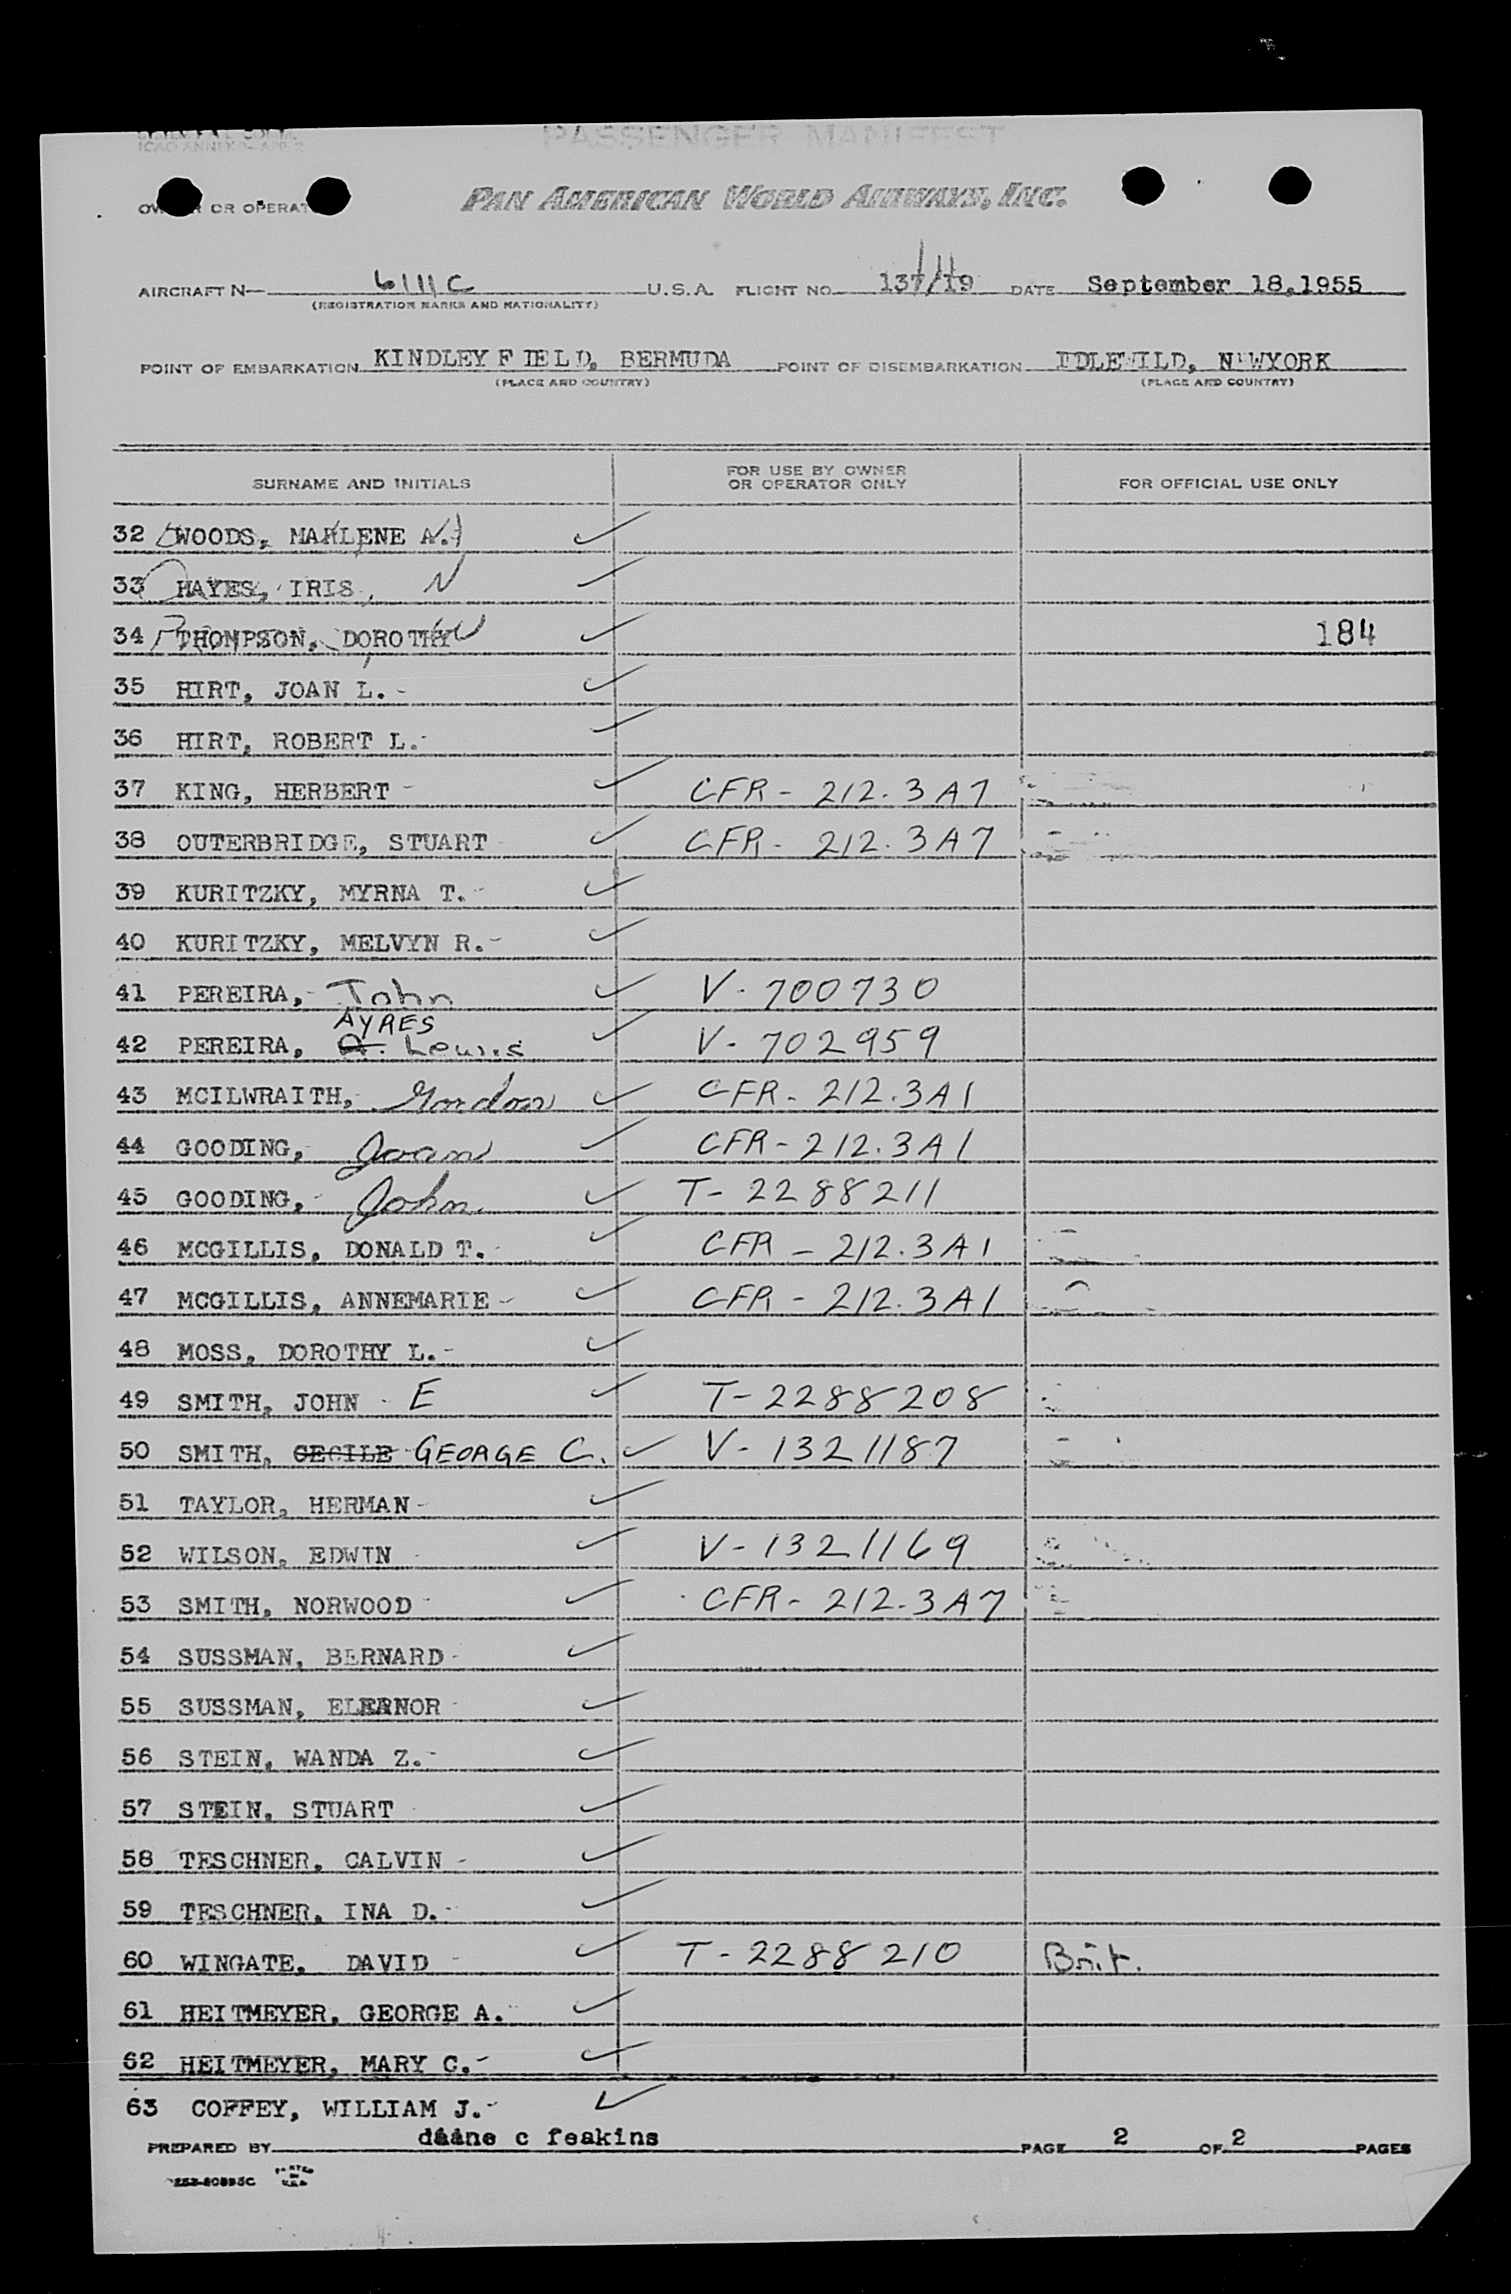 ICAO ANNEX 9-APP. 2
PASSENGER MANIFEST
OWNER OR OPERATOR PAN AMERICAN WORLD AIRWAYS, INC.
AIRCRAFT N— 6111C U.S.A. FLIGHT NO. 137/19 DATE September 18,1955
(REGISTRATION MARKS AND NATIONALITY)
POINT OF EMBARKATION KINDLEY FIELD, BERMUDA POINT OF DISEMBARKATION IDLEWILD, NEWYORK
(PLACE AND COUNTRY) (PLACE AND COUNTRY)
SURNAME AND INITIALS FOR USE BY OWNER OR OPERATOR ONLY FOR OFFICIAL USE ONLY
32 WOODS, MARLENE A. ✓
33 HAYES, IRIS, N ✓
34 THOMPSON, DOROTHY ✓ 184
35 HIRT, JOAN L. - ✓
36 HIRT, ROBERT L. - ✓
37 KING, HERBERT - ✓ CFR - 212.3A7
38 OUTERBRIDGE, STUART - ✓ CFR - 212.3A7
39 KURITZKY, MYRNA T. - ✓
40 KURITZKY, MELVYN R. - ✓
41 PEREIRA, - John ✓ V - 700730
AYRES
42 PEREIRA, A. Lewis ✓ V - 702959
43 MCILWRAITH, - Gordon ✓ CFR - 212.3A1
44 GOODING, - Joan ✓ CFR - 212.3A1
45 GOODING, - John. ✓ T - 2288211
46 MCGILLIS, DONALD T. - ✓ CFR - 212.3A1
47 MCGILLIS, ANNEMARIE - ✓ CFR - 212.3A1
48 MOSS, DOROTHY L. - ✓
49 SMITH, JOHN - E ✓ T - 2288208
50 SMITH, CECILE - GEORGE C. ✓ V - 1321187
51 TAYLOR, HERMAN - ✓
52 WILSON, EDWIN - ✓ V - 1321169
53 SMITH, NORWOOD - ✓ CFR - 212.3A7
54 SUSSMAN, BERNARD - ✓
55 SUSSMAN, ELEANOR - ✓
56 STEIN, WANDA Z. - ✓
57 STEIN, STUART - ✓
58 TESCHNER, CALVIN - ✓
59 TESCHNER, INA D. - ✓
60 WINGATE, DAVID - ✓ T - 2288210 Brit.
61 HEITMEYER, GEORGE A. - ✓
62 HEITMEYER, MARY C. - ✓
63 COFFEY, WILLIAM J. - ✓
PREPARED BY dááne c feakins PAGE 2 OF 2 PAGES
PRINTED IN U.S.A.